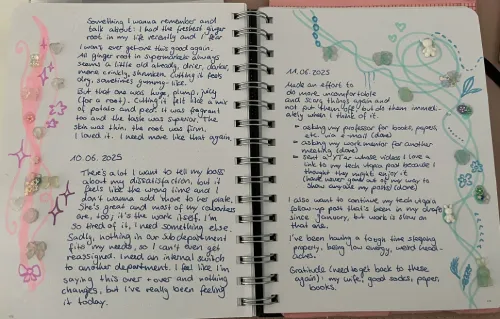 Something I wanna remember and
talk about: I had the freshest ginger
root in my life recently and I fear
I won't ever get one this good again.
The ginger root in supermarkets always
seems a little old already, drier, darker,
more crinkly, shrunken. Cutting it feels
dry, sometimes gummy-like.
But that one was huge, plump, juicy
(for a root). Cutting it felt like a mix
of potato and pear. It was fragrant
too and the taste was superior. The
skin was thin, the root was firm,
I loved it. I need more like that again.
10.06.2025
There's a lot I want to tell my boss
about my dissatisfaction, but it
feels like the wrong time and I
don't wanna add more to her plate.
She's great and most of my coworkers
are, too; it's the work itself. I'm
so tired of it, I need something else.
Sadly, nothing in our subdepartment
fits my needs, so I can't even get
reassigned. I need an internal switch
to another department. I feel like I'm
saying this over + over and nothing
changes, but I've really been feeling
it today.
11.06.2025
Made an effort to
do more uncomfortable
and scary things again and
not put them off, but do them immedi-
ately when I think of it.
• asking my professor for books, papers,
etc. via e-mail (done)
• asking my work mentor for another
meeting (done)
• sent a YTer whose videos I love a
link to my tech utopia post because I
thought they might enjoy it
(have never gone out of my way to
show anyone my posts) (done)
I also want to continue my tech utopia
follow-up post that's been in my drafts
since january, but work is slow on
that one.
I've been having a tough time sleeping
properly, being low energy, weird head-
aches.
Gratitude (need to get back to these
again): my wife, good sodas, paper,
books.